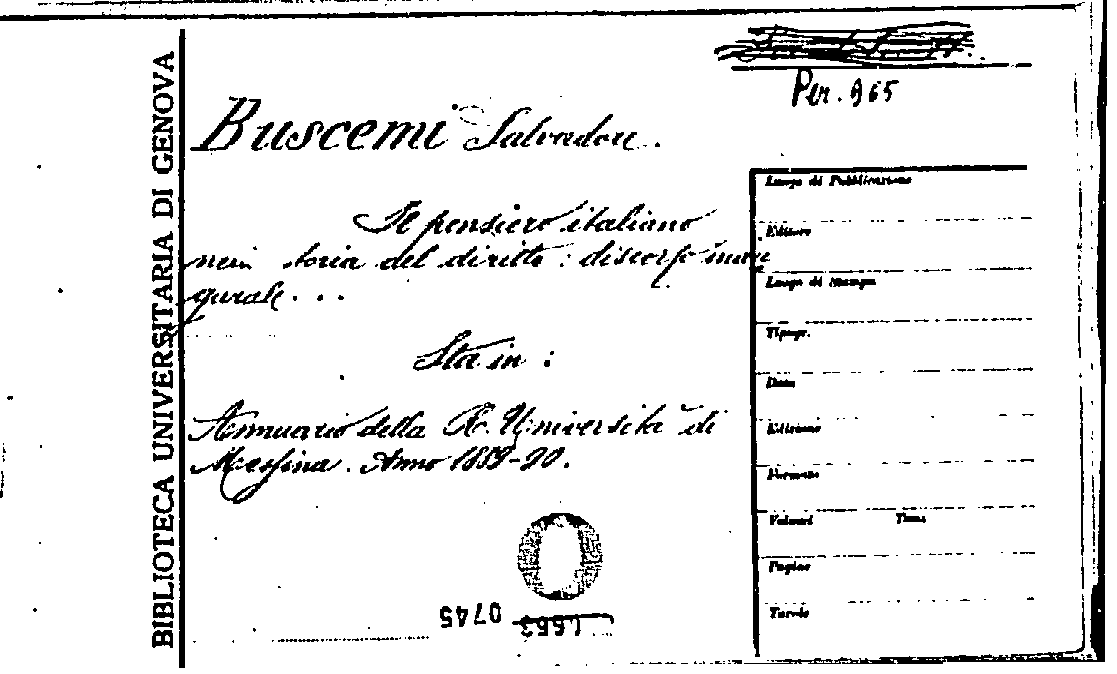 Per. 965
BIBLIOTECA UNIVERSITARIA DI GENOVA
Buscemi Salvadore.
Il pensiero italiano
storia del diritto: discorso inau
gurale...
Sta in:
Annuario della R. Università di
Messina. Anno 1889-90.
0745
Luogo di Pubblicazione
Editore
Luogo di Stampa
Tipogr.
Data
Edizione
Formato
Volumi Tomi
Pagine
Tavole